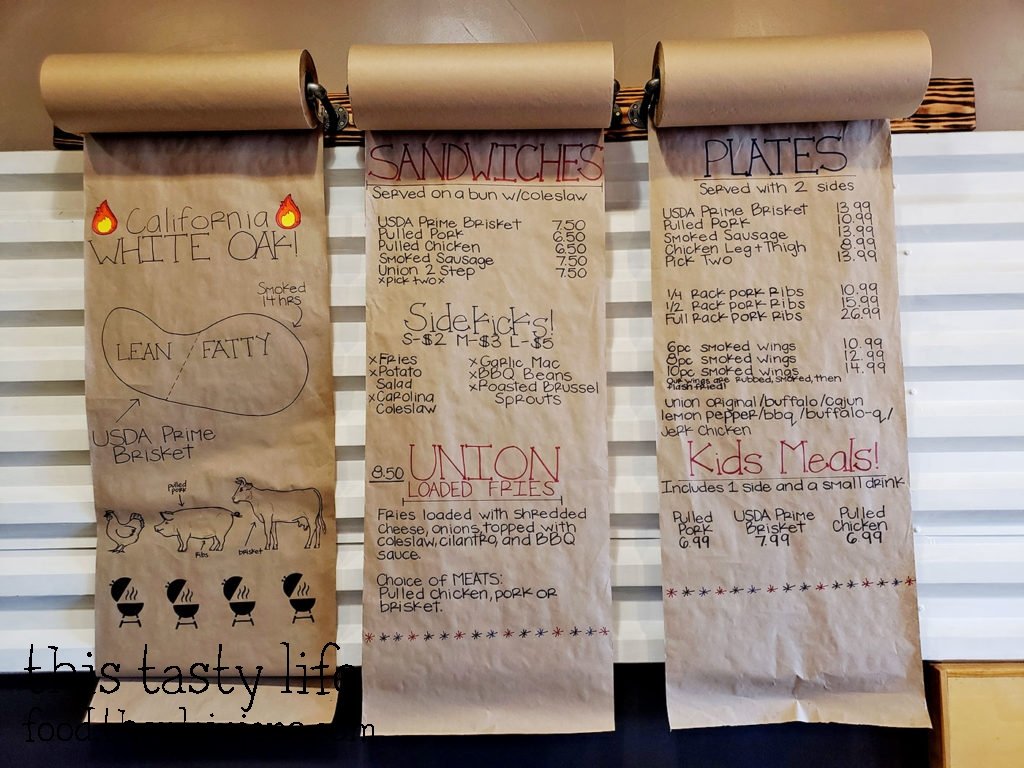 California
WHITE OAK!
Smoked
14 hrs
LEAN
FATTY
USDA Prime
Brisket
pulled
pork
Ribs
brisket
SANDWICHES
Served on a bun w/coleslaw
USDA Prime Brisket 7.50
Pulled Pork 6.50
Pulled Chicken 6.50
Smoked Sausage 7.50
Union 2 Step 7.50
xpick twox
Sidekicks!
S-$2 M-$3 L-$5
xFries
xPotato
Salad
xCarolina
Coleslaw
xGarlic Mac
xBBQ Beans
xRoasted Brussel
Sprouts
8.50 UNION
LOADED FRIES
Fries loaded with shredded
cheese, onions, topped with
coleslaw, cilantro, and BBQ
sauce.
Choice of MEATS:
Pulled chicken, pork or
brisket.
PLATES
Served with 2 sides
USDA Prime Brisket 13.99
Pulled Pork 10.99
Smoked Sausage 13.99
Chicken Leg+Thigh 8.99
Pick Two 13.99
1/4 Rack pork Ribs 10.99
1/2 Rack pork Ribs 15.99
Full Rack pork Ribs 26.99
6pc smoked wings 10.99
8pc smoked wings 12.99
10pc smoked wings 14.99
Our wings are rubbed, smoked, then
flash fried!
union original/buffalo/cajun
lemon pepper/bbq/buffalo-q/
Jerk Chicken
Kids Meals!
Includes 1 side and a small drink
Pulled
Pork
6.99
USDA Prime
Brisket
7.99
Pulled
Chicken
6.99
this tasty life